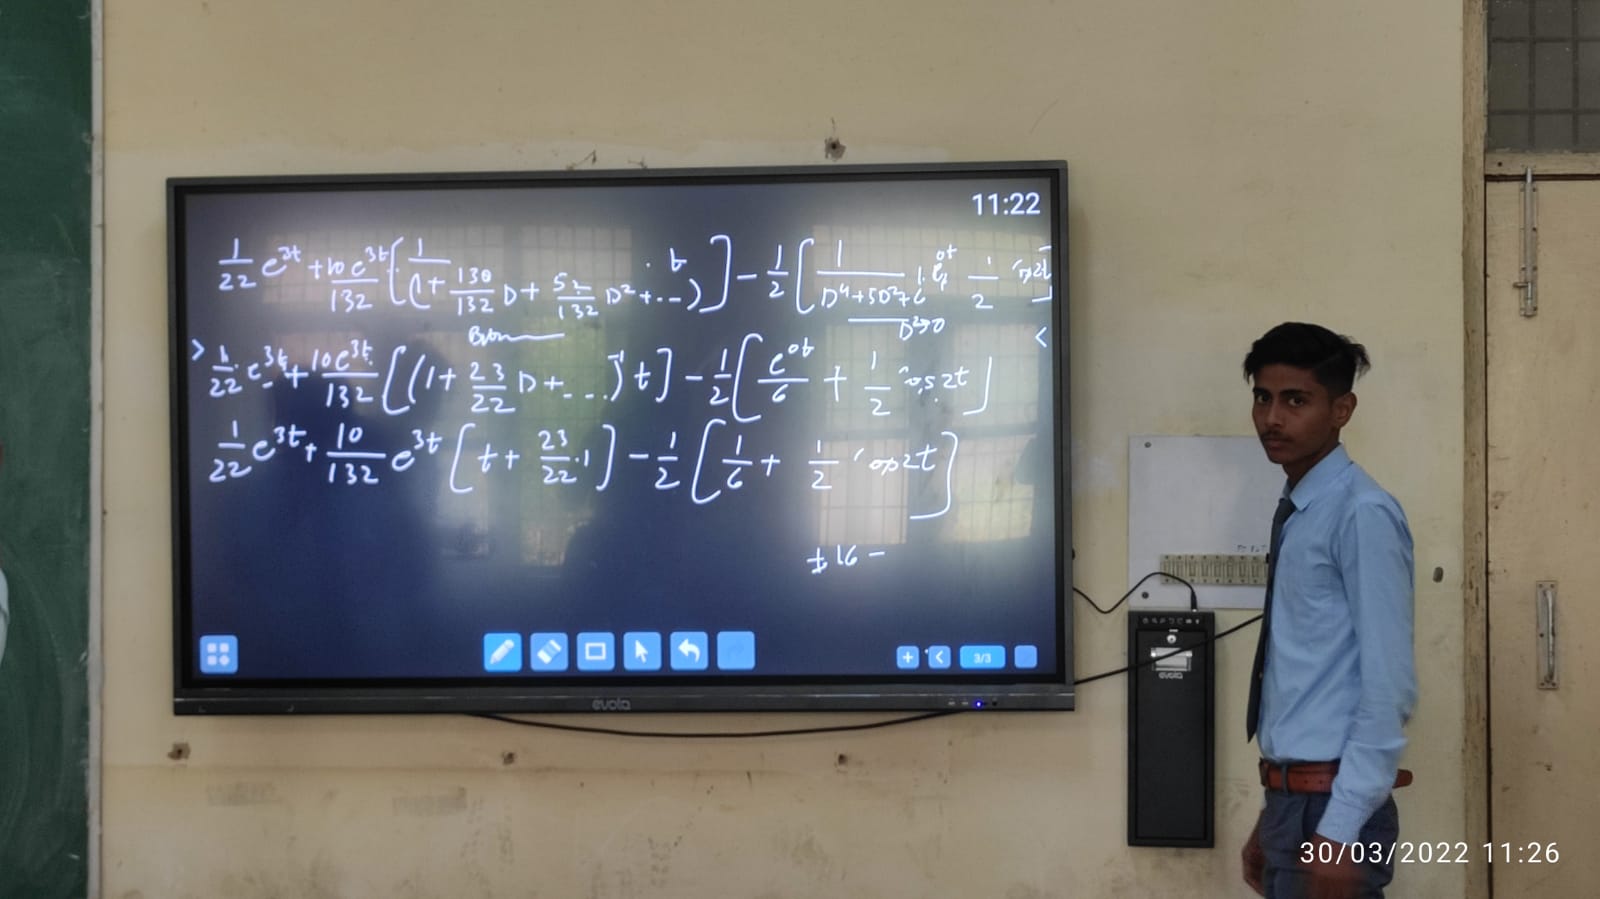 11:22
1/22 e^3t + 10 e^3t/132 [ 1/(1 + 130/132 D + 52/132 D² + ...) . t ] - 1/2 [ 1/(D⁴+5D²+6) 1. e^ot 1/2 cos2t ]
D²→0
> 1/22 e^3t + 10e^3t/132 [ (1 + 23/22 D + ...)⁻¹ t ] - 1/2 [ e^ot/6 + 1/2 cos2t ] <
1/22 e^3t + 10/132 e^3t [ t + 23/22 .1 ] - 1/2 [ 1/6 + 1/2 cos2t ]
± 16 -
+ < 3/3
evota
evota
30/03/2022 11:26